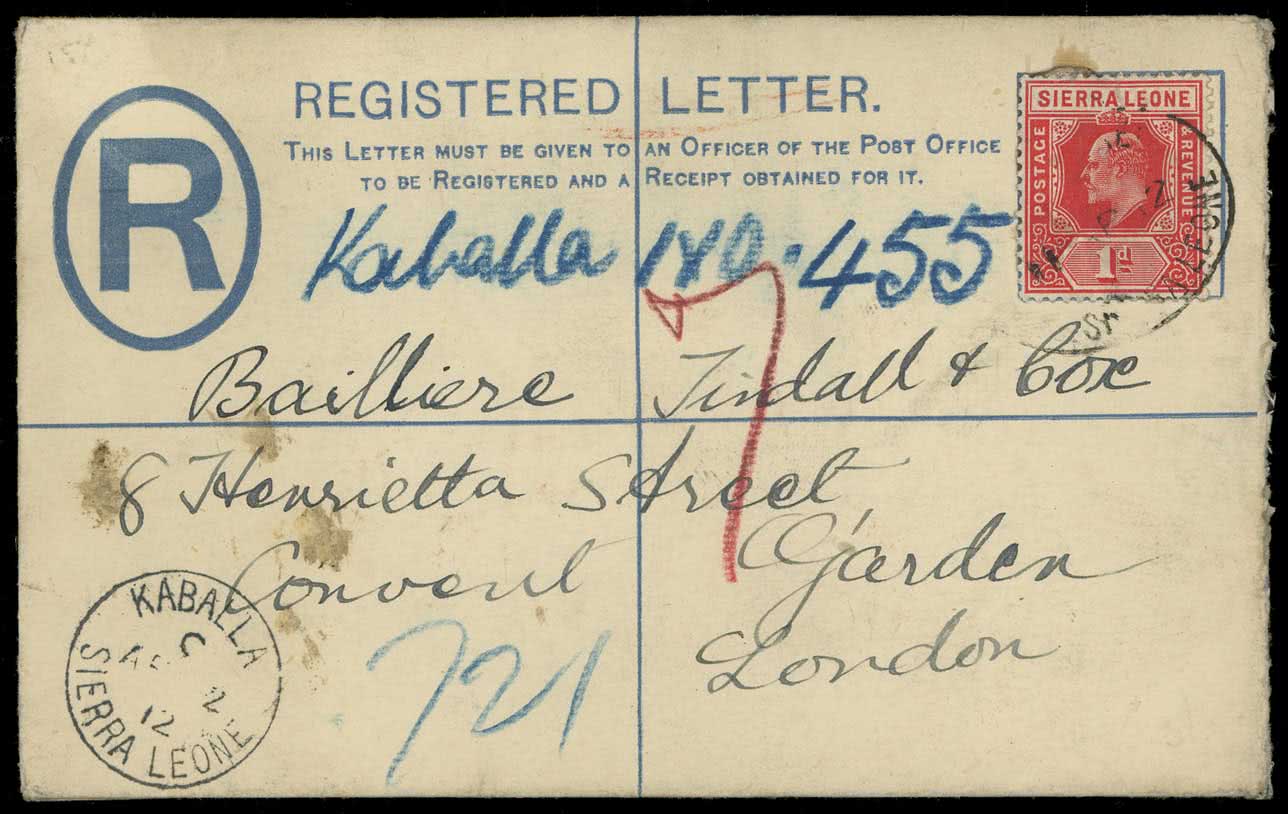 REGISTERED LETTER.
THIS LETTER MUST BE GIVEN TO AN OFFICER OF THE POST OFFICE
TO BE REGISTERED AND A RECEIPT OBTAINED FOR IT.
R
SIERRA LEONE
POSTAGE
& REVENUE
1d
LEONE
Kaballa No. 455
Bailliere Tindall & Cox
8 Henrietta Street,
Convent Garden
London
721
KABALLA
C
12
SIERRA LEONE